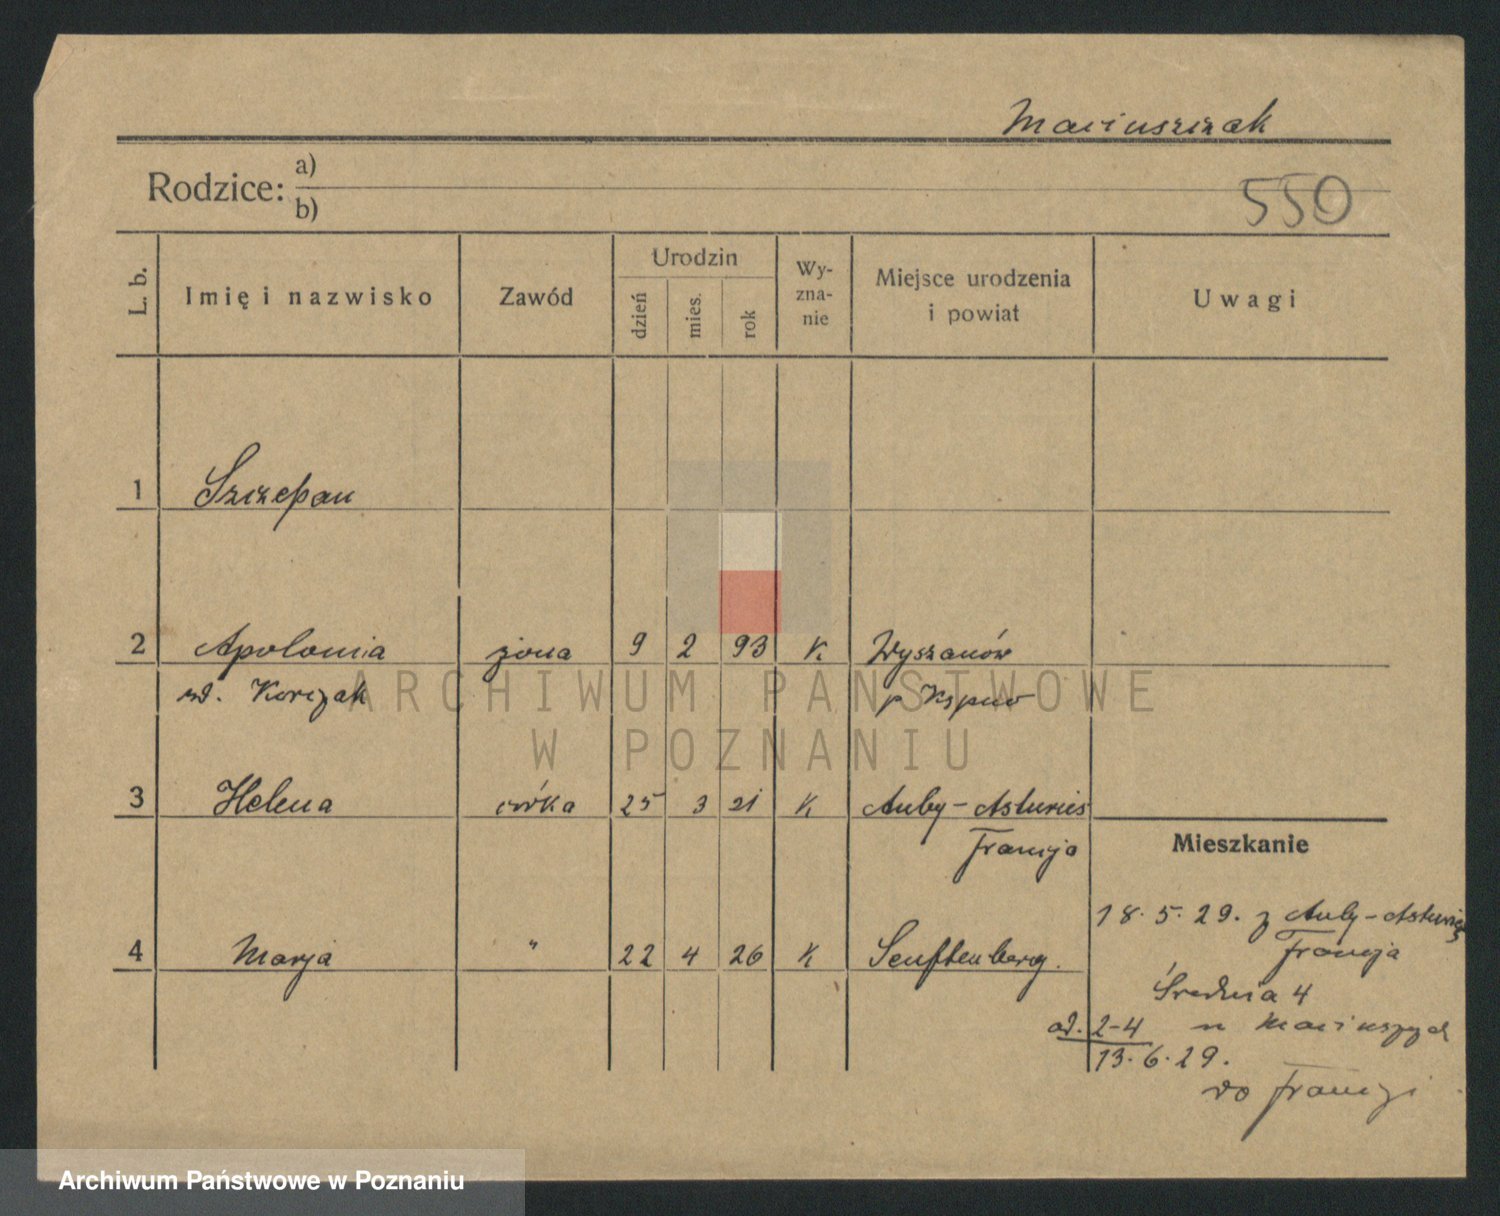 Maciuszczak
Rodzice: a)
b)
550
L. b.
Imię i nazwisko
Zawód
Urodzin
dzień
mies.
rok
Wy-
zna-
nie
Miejsce urodzenia
i powiat
Uwagi
1 Szczepan
2 Apolonia żona 9 2 93 K Wyszanów
Korczak p Kępno
3 Helena córka 25 3 21 K Auby-Asturies
Francja
4 Marja " 22 4 26 K Senftenberg.
Mieszkanie
18.5.29. z Auby-Asturies
Francja
Średnia 4
od. 2-4
13.6.29.
do Francji
ARCHIWUM PAŃSTWOWE
W POZNANIU
Archiwum Państwowe w Poznaniu